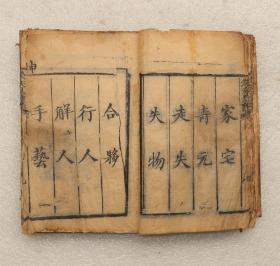 家宅
壽元
走失
失物
合夥
行人
解人
手藝